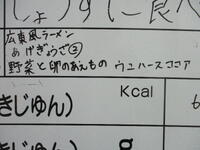 じょうずに食べ
広東風ラーメン
あげぎょうざ②
野菜と卵のあえもの ウユハースココア
Kcal 6
きじゅん)
きじゅん) g